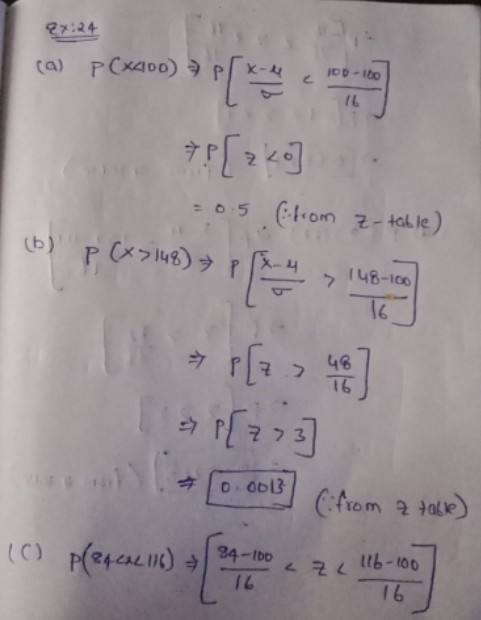 Ex:24
(a) P(X<100) ⇒ P[ (x-μ)/σ < (100-100)/16 ]
⇒ P[ z < 0 ]
= 0.5 (∵ from z-table)
(b) P(X>148) ⇒ P[ (x-μ)/σ > (148-100)/16 ]
⇒ P[ z > 48/16 ]
⇒ P[ z > 3 ]
⇒ 0.0013 (∵ from z table)
(C) P(84<x<116) ⇒ [ (84-100)/16 < z < (116-100)/16 ]